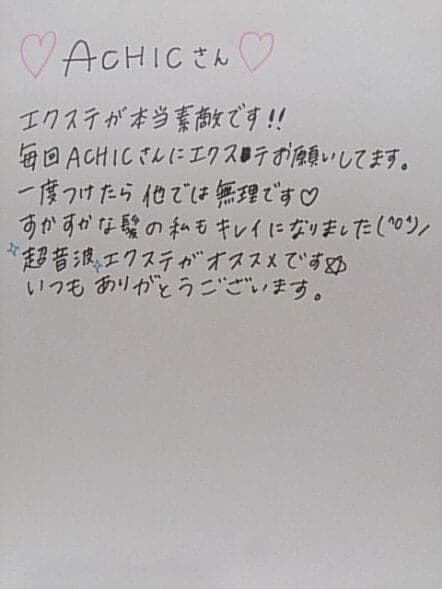 ♡ACHICさん♡
エクステが本当素敵です!!
毎回ACHICさんにエクステお願いしてます。
一度つけたら他では無理です♡
すかすかな髪の私もキレイになりました(^o^)ノ
超音波エクステがオススメです
いつもありがとうございます。